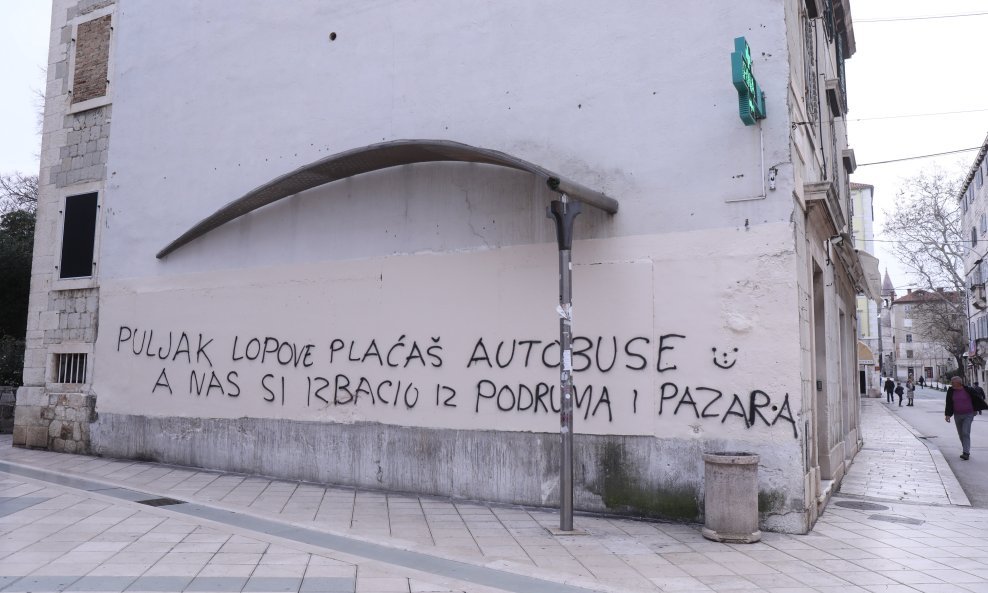 PULJAK LOPOVE PLAĆAŠ AUTOBUSE
A NAS SI IZBACIO IZ PODRUMA I PAZARA